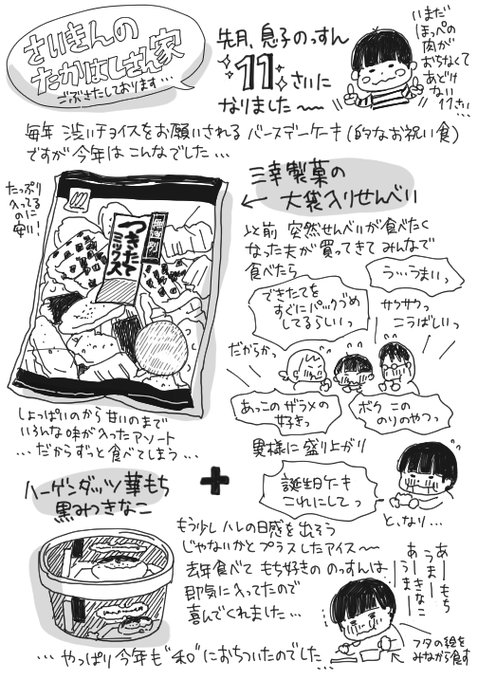 さいきんの
たかはしさん家
ごぶさたしております…
先月、息子のっすん
11さいに
なりました〜
いまだ
ほっぺの
肉が
おちなくて
あどけ
ない
11さい…
毎年 渋いチョイスをお願いされる バースデーケーキ(的なお祝い食)
ですが 今年は こんなでした…
三幸製菓の
大袋入りせんべい
たっぷり
入ってる
のに
安い!
つきたて
ミックス
以前 突然せんべいが食べたく
なった夫が 買ってきて みんなで
食べたら
う…うまいっ
できたてを
すぐにパックづめ
してるらしいっ
サクサクっ
こうばしいっ
だからかっ
あっこの ザラメの
好きっ
ボク この
のりのやつっ
異様に 盛り上がり
誕生日ケーキ
これにしてっ
と、なり…
しょっぱいのから 甘いのまで
いろんな 味が入ったアソート
…だからずっと 食べてしまう…
+
ハーゲンダッツ 華もち
黒みつきなこ
もう少し ハレの日感を 出そう
じゃないかと プラスしたアイス〜
去年食べて もち好きの のっすんは
即気に入ってたので
喜んでくれました…
あーもち
うまー
あーきなこ
うまー
フタの絵を
みながら食す
…やっぱり今年も“和”におちついたのでした…